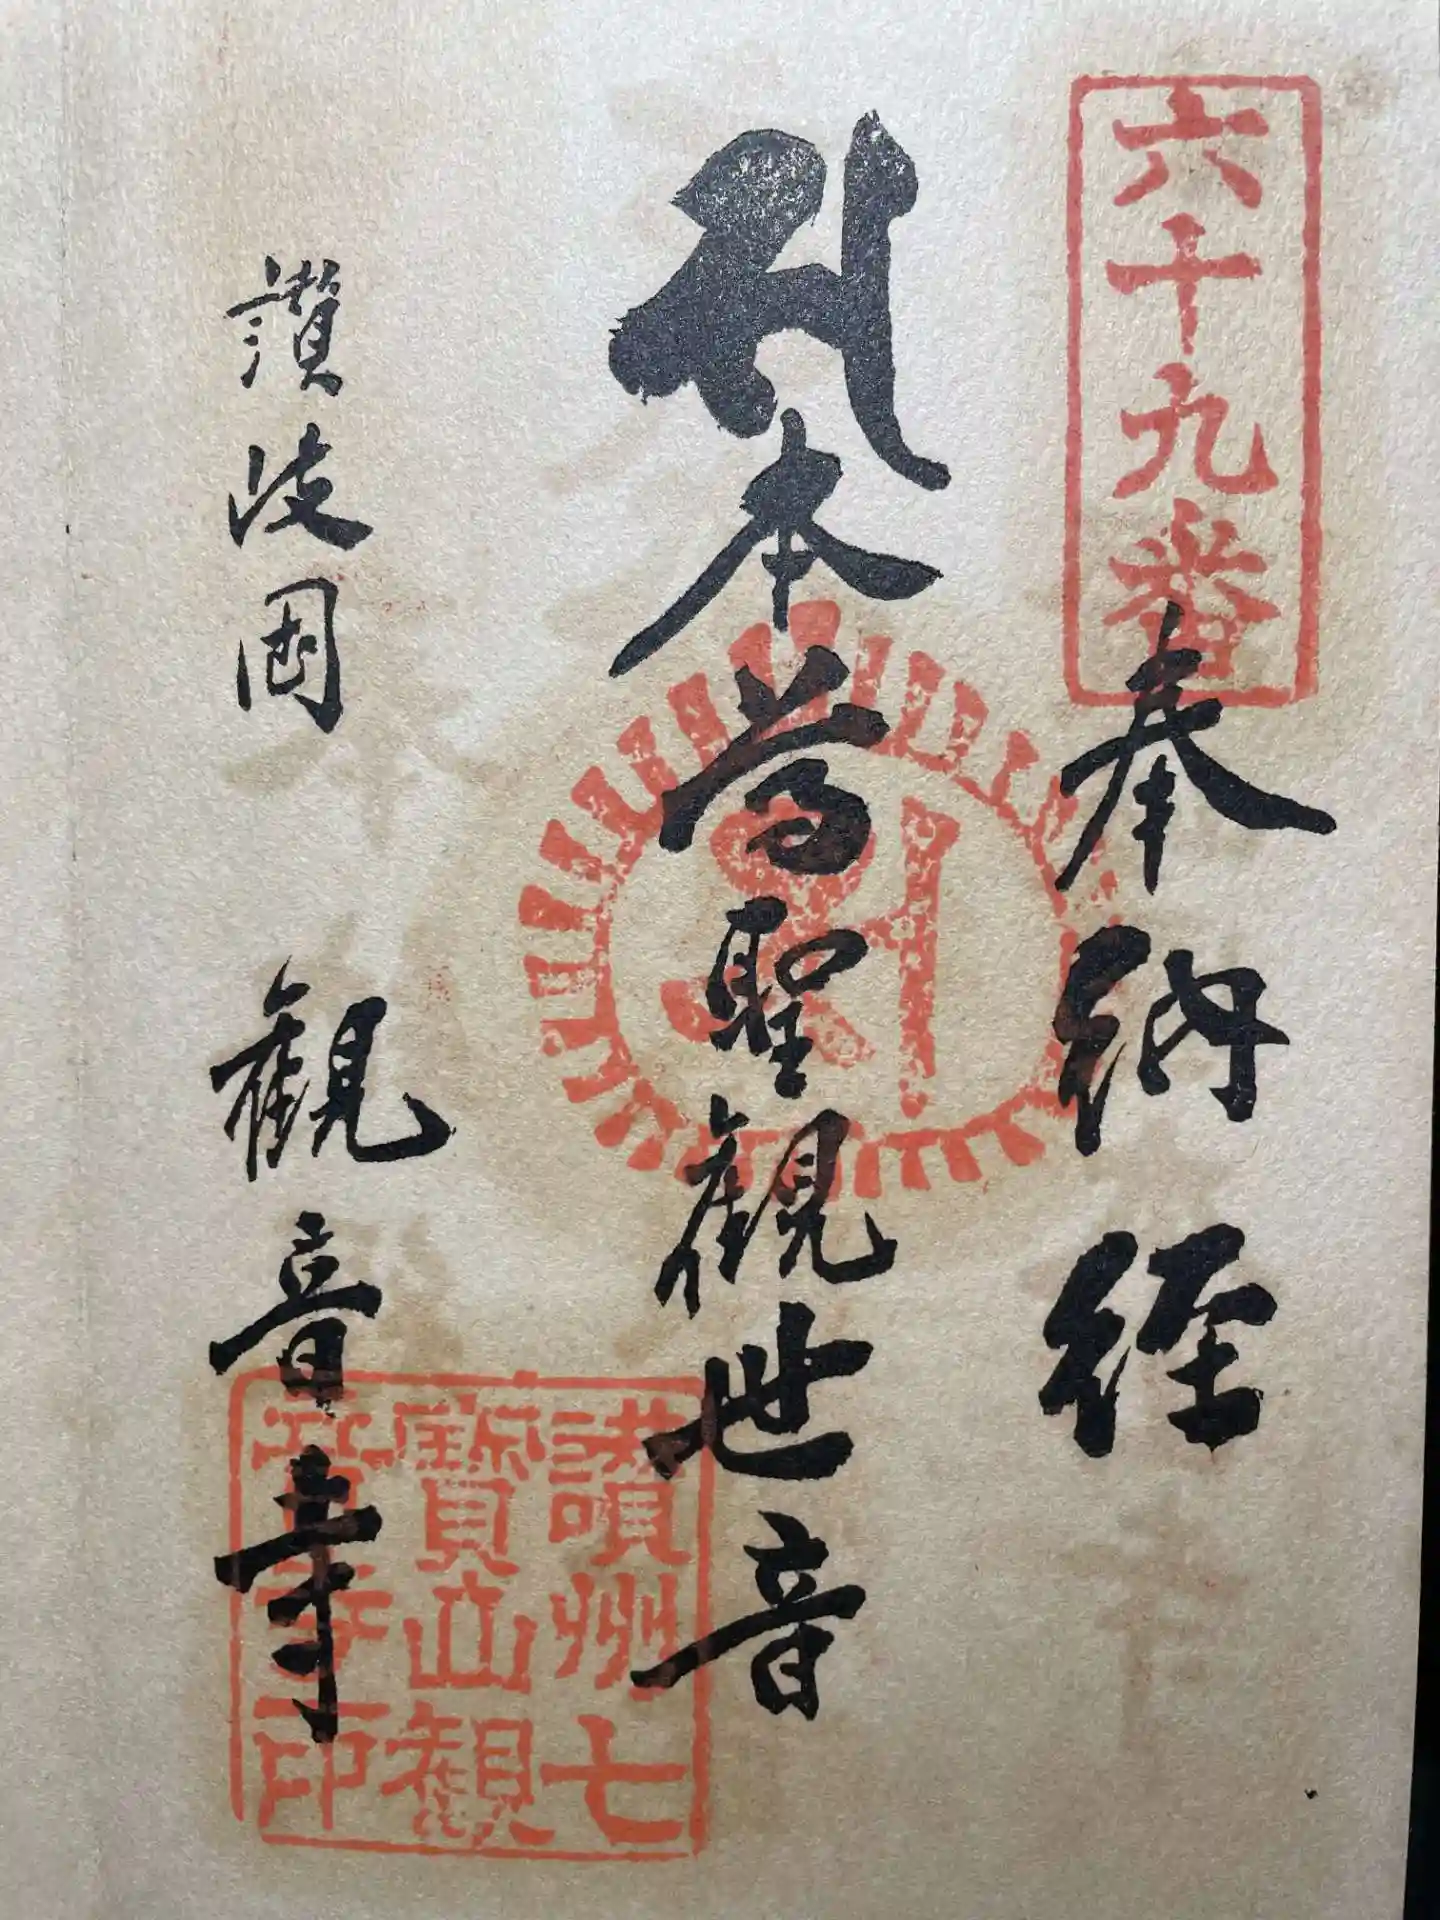 六十九番
奉納経
𑖭
本尊聖観世音
𑖭
讃岐国 観音寺
讃州七
寳山観
音寺印